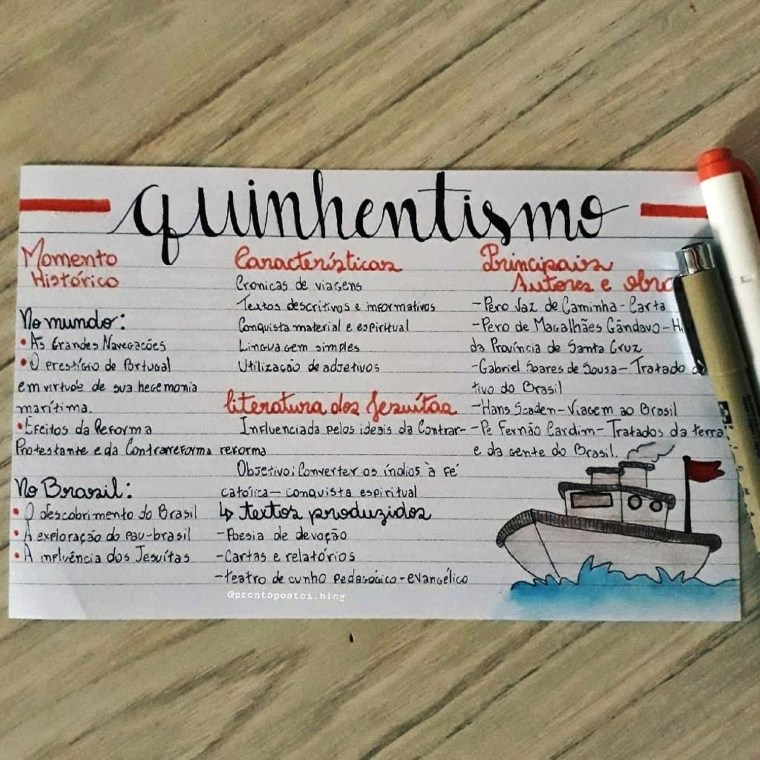 quinhentismo
Momento
Histórico
No mundo:
• As Grandes Navegações
• O prestígio de Portugal
em virtude de sua hegemonia
marítima.
• Efeitos da Reforma
Protestante e da Contrarreforma
No Brasil:
• O descobrimento do Brasil
• A exploração do pau-brasil
• A influência dos Jesuítas
Características
Cronicas de viagens
Textos descritivos e informativos
Conquista material e espiritual
Linguagem simples
Utilização de adjetivos
literatura dos Jesuítas
Influenciada pelos ideais da Contrar-
reforma
Objetivo: Converter os índios à fé
católica — conquista espiritual
↳ textos produzidos
- Poesia de devoção
- Cartas e relatórios
- teatro de cunho pedagógico - evangélico
@prontopostei.blog
Principais
Autores e obra
- Pero Vaz de Caminha - Carta
- Pero de Magalhães Gândavo -
da Província de Santa Cruz
- Gabriel Soares de Sousa - Tratado
tivo do Brasil
- Hans Staden - Viagem ao Brasil
- Pe Fernão Cardim - Tratados da terra
e da gente do Brasil.